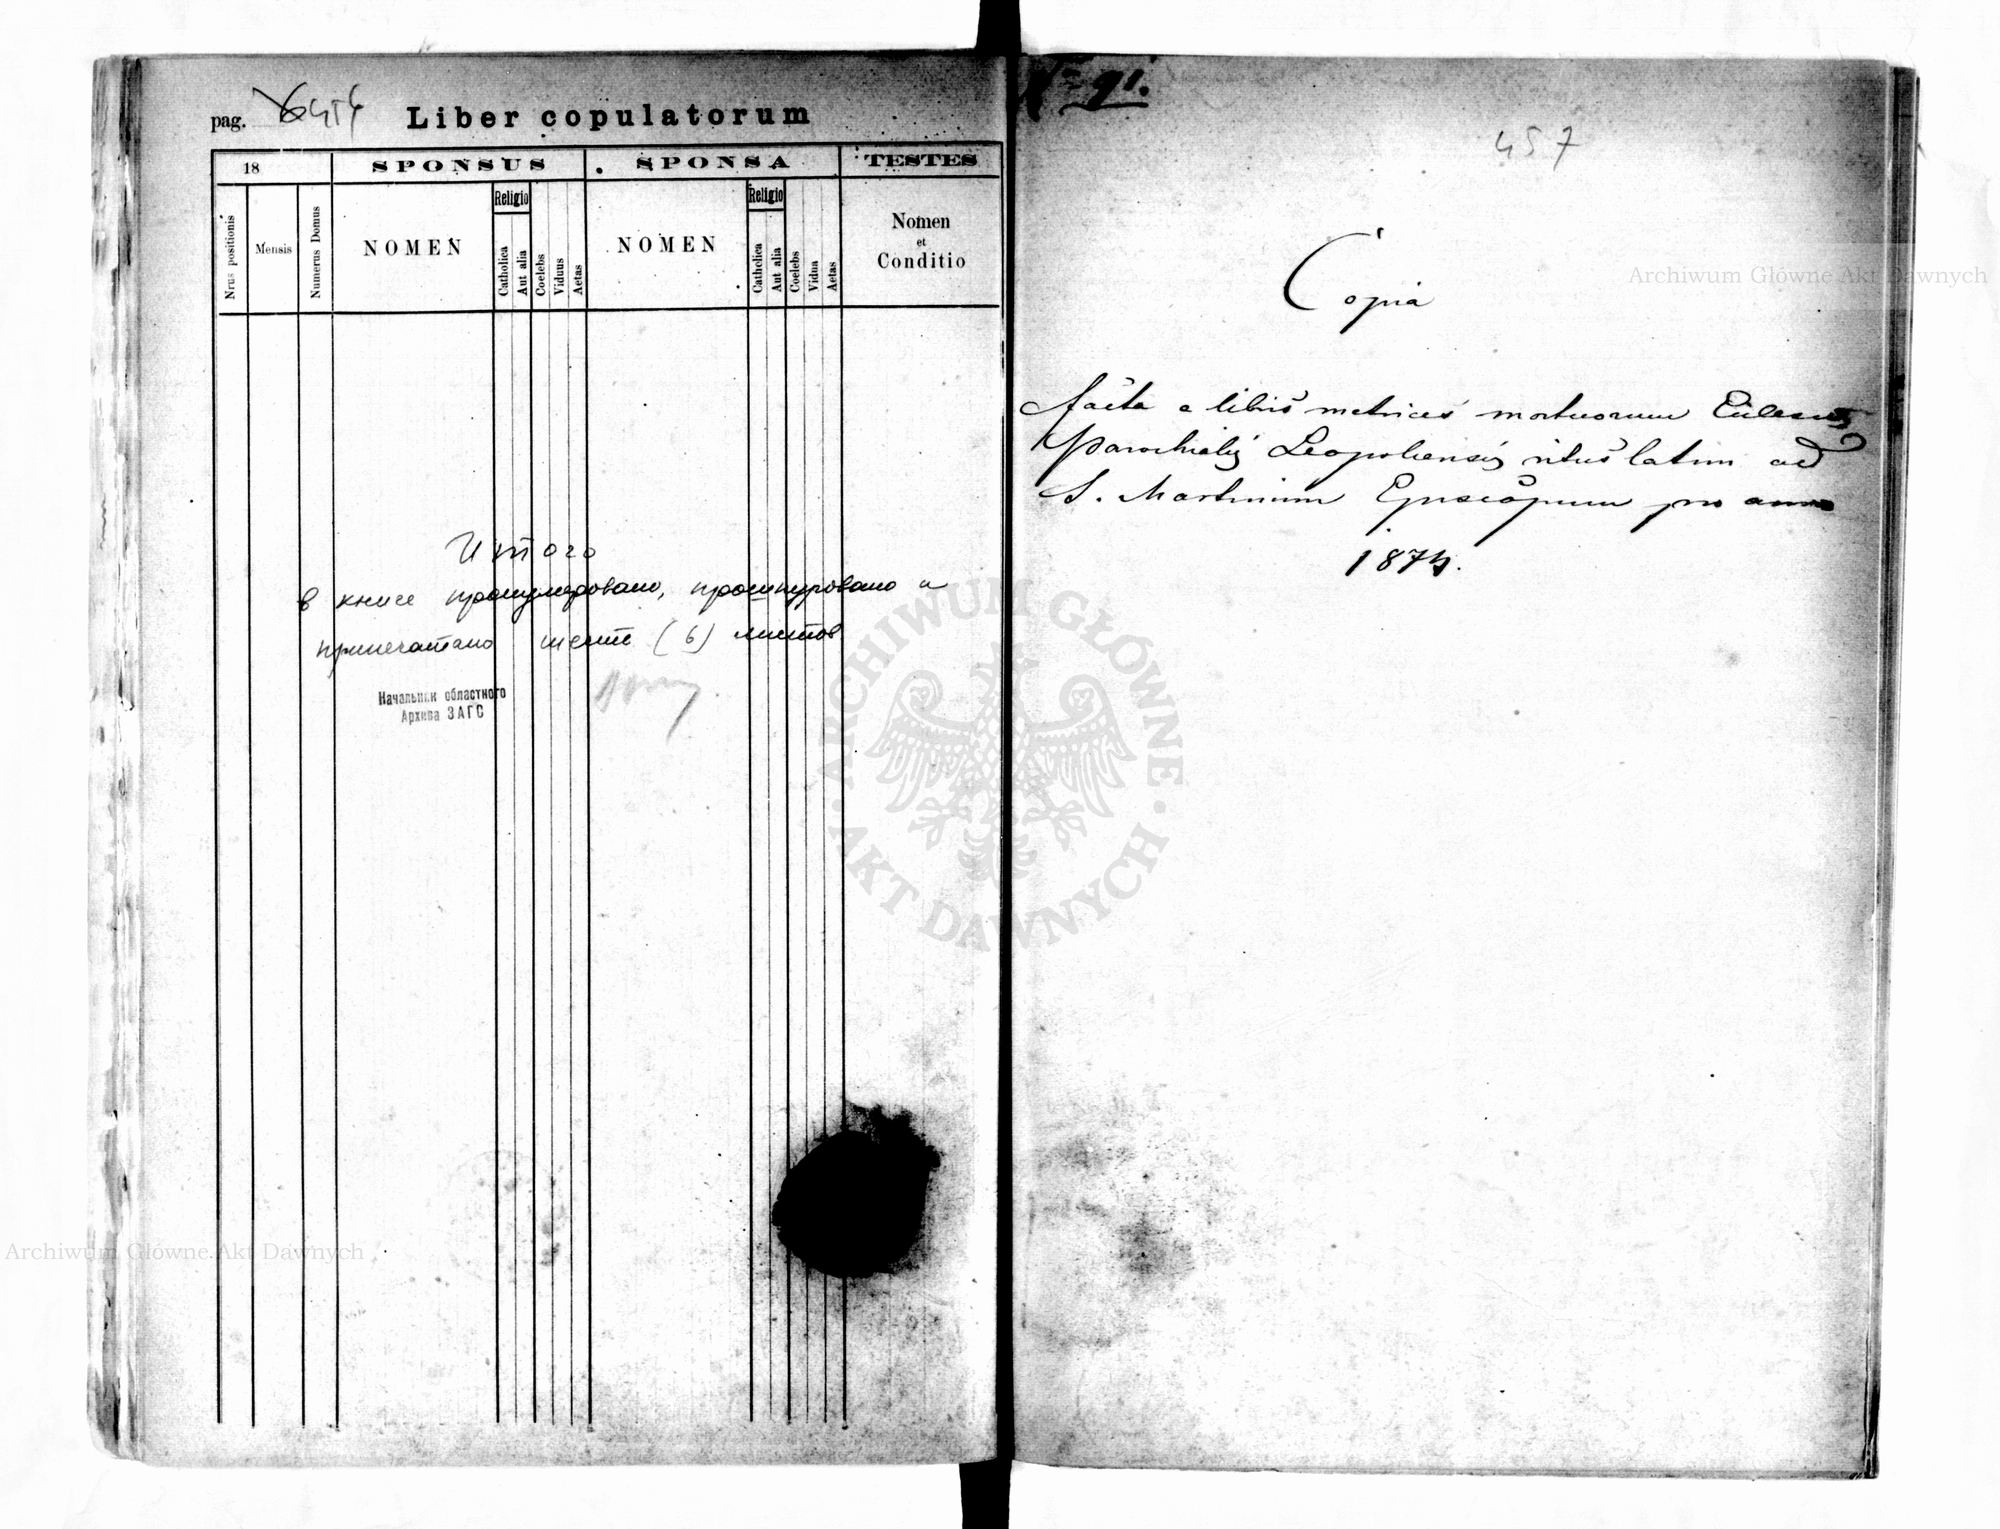 pag. 6 456 Liber copulatorum
18 SPONSUS SPONSA TESTES
Nrus positionis
Mensis
Numerus Domus
NOMEN
Religio
Catholica
Aut alia
Coelebs
Viduus
Aetas
NOMEN
Religio
Catholica
Aut alia
Coelebs
Vidua
Aetas
Nomen
et
Conditio
Итого
в книге пронумеровано, прошнуровано и
припечатано шесть (6) листов
Начальник областного
Архива ЗАГС
№ 91.
457
Copia
facta e libris metrices mortuorum Ecclesiae
Parochialis Leopoliensis ritus latini ad
S. Martinum Episcopum pro anno
1874.
Archiwum Główne Akt Dawnych
Archiwum Główne Akt Dawnych
ARCHIWUM GŁÓWNE · AKT DAWNYCH ·